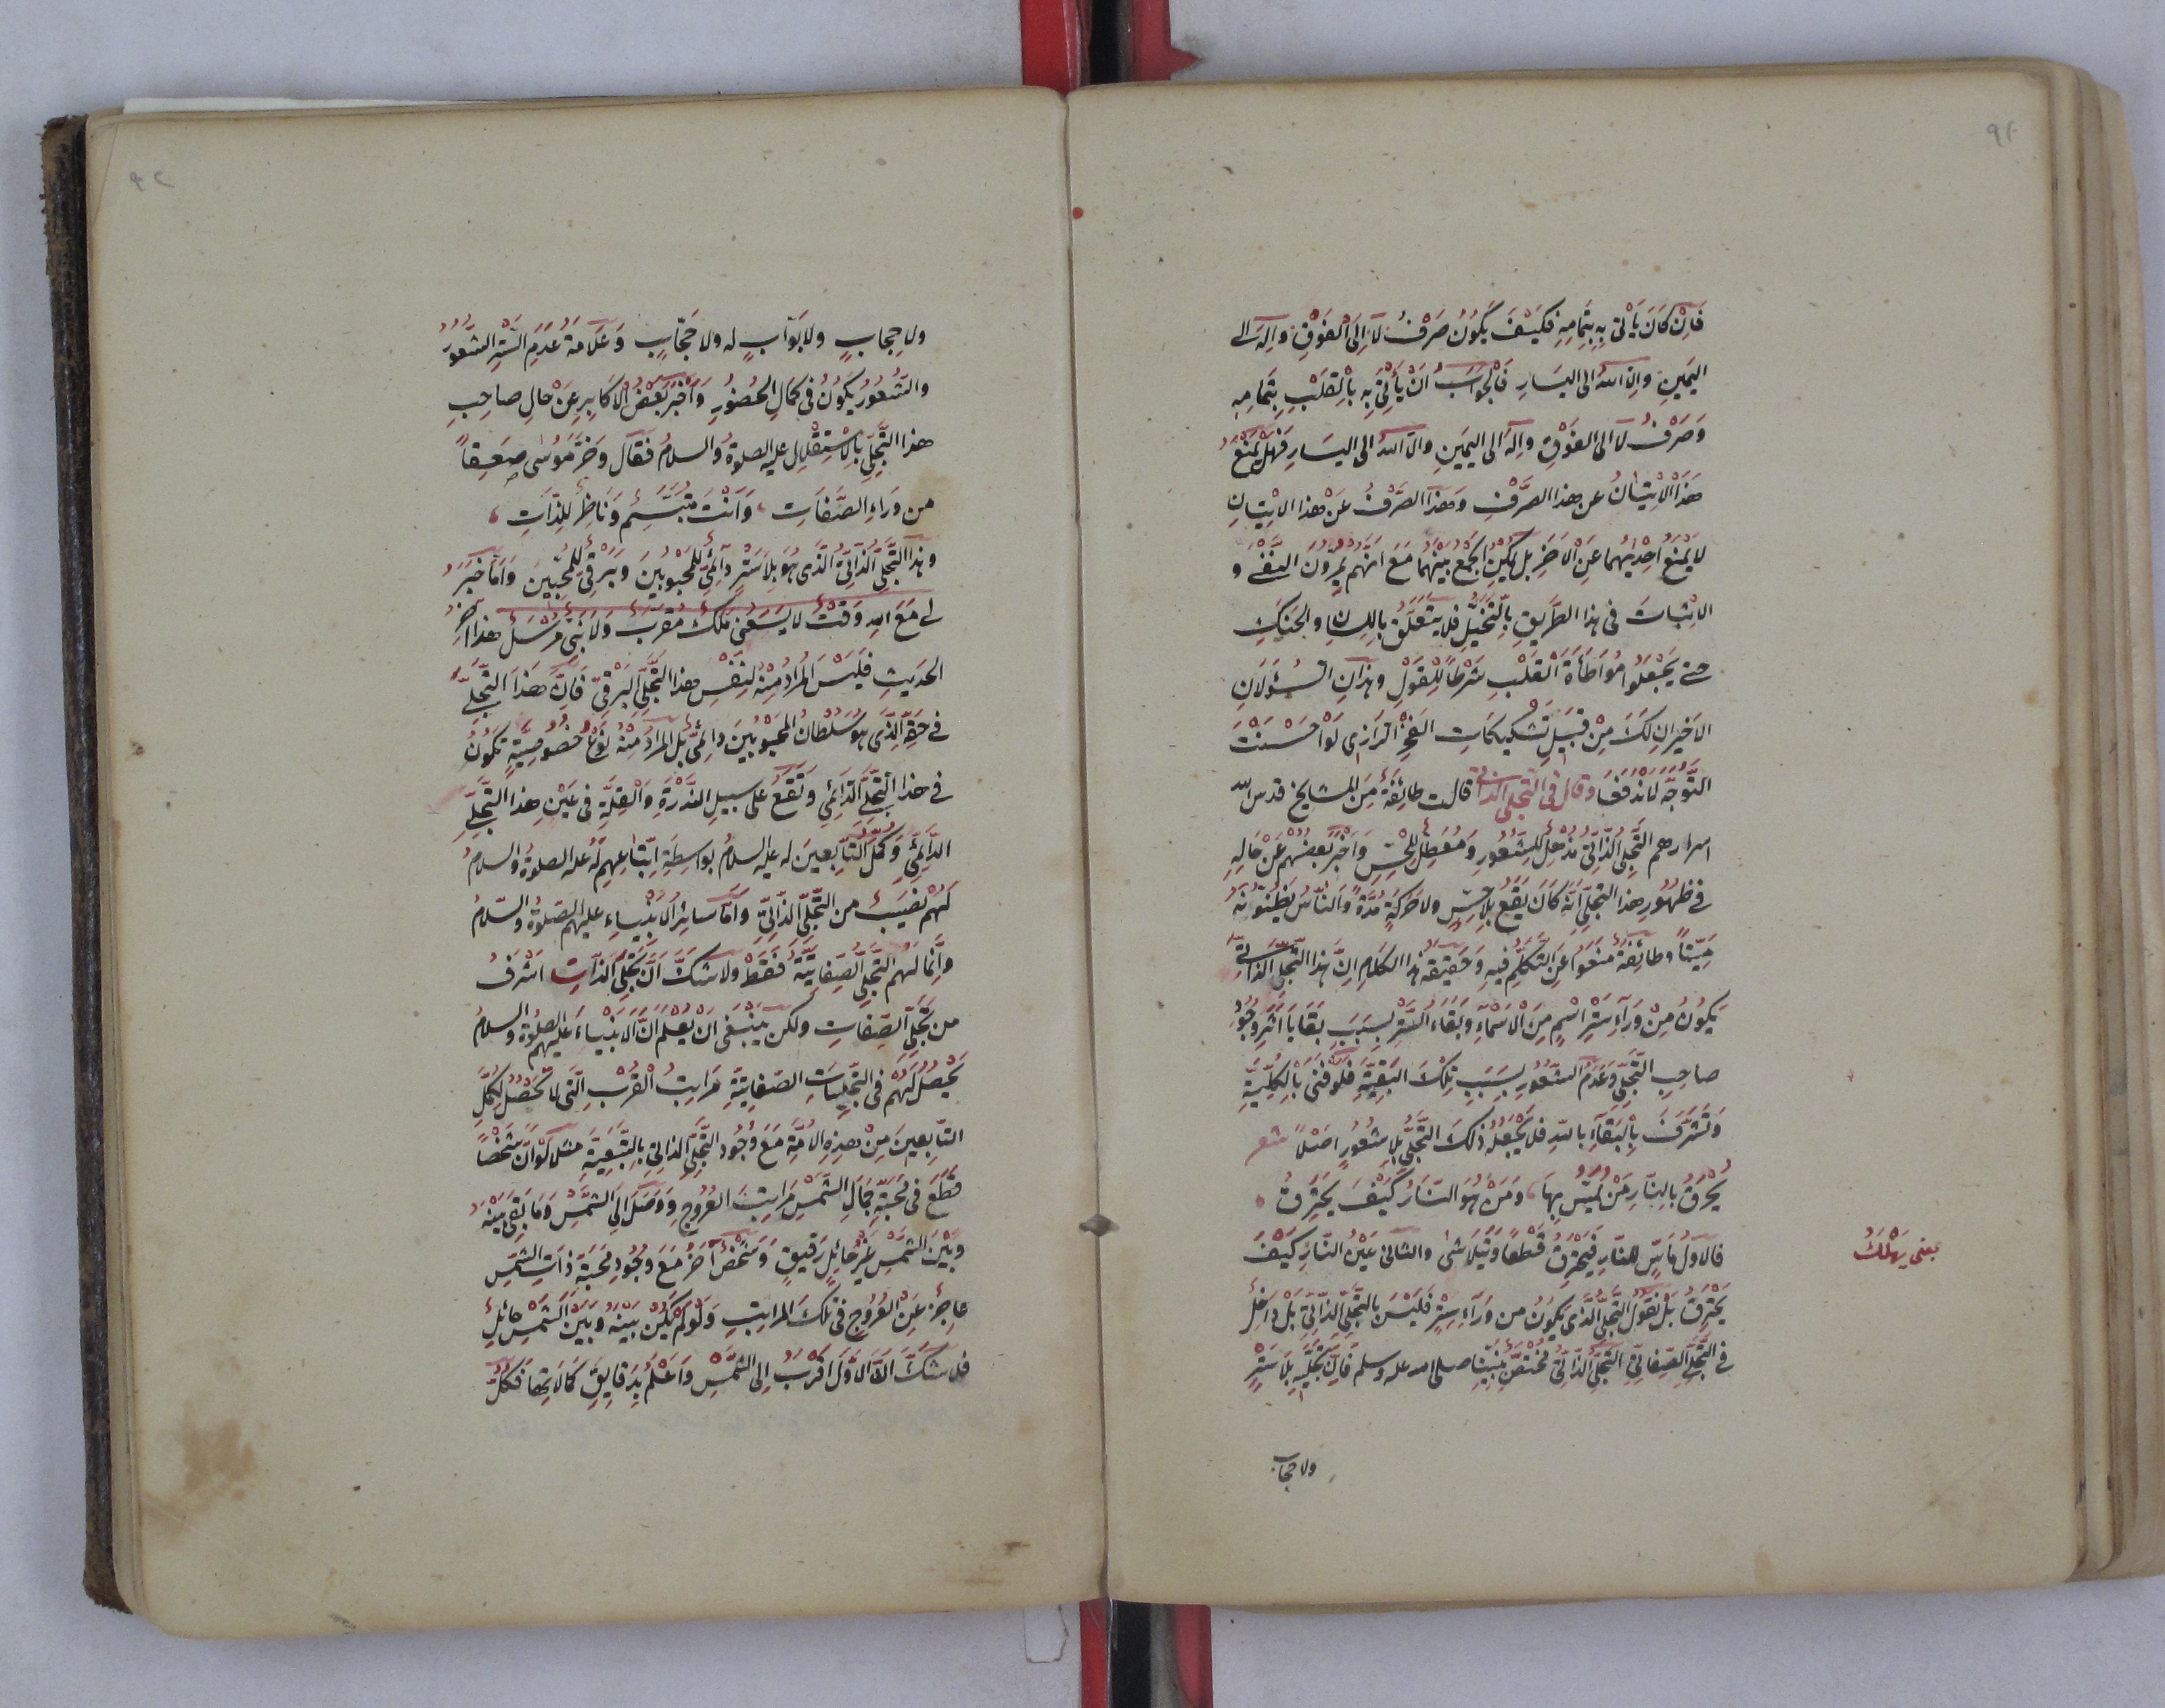 ٩٢
فَاِنْ كَانَ يَأْتى بِهِ بِتَمَامِهِ فكَيْفَ يَكُونُ صَرْفُ لَا اِلَى الْفَوْقِ وَاِلٰهَ الى
اليَمينِ وَاِلَّا اللّٰه الى اليسَارِ فَالْجَوَابُ اَنْ يَأْتِىَ بِهِ بِالْقَلْبِ بِتَمَامِهِ
وَصَرْفُ لَا الى الفَوْقِ وَاِلٰهَ الى اليَمينِ وَاِلَّا اللّٰه الى اليسَارِ فَهَلْ يَمْنَعُ
هذَا الْاِتْيَانُ عن هذا الصَّرْفِ وَهذَا الصَّرْفُ عَنْ هذا الاِتْيَانِ
لا يَمْنَعُ اَحَدُيهُمَا عَنِ الْاٰخَرِ بل يُمْكِنُ الجَمْعُ بَيْنَهُمَا مَعَ اَنَّهُمْ يُمِرُّونَ النَّفْىَ وَ
الاِثْبَاتَ فى هذا الطَّرِيقِ بِالتَّخَيُّلِ فلا يتَعَلَّقُ بِاللِّسَانِ والحَنَكِ
حتى يَجْعَلُوا مُوَاطَأَةَ الْقَلْبِ شَرْطًا لِلْقَوْلِ وهذانِ السُّؤَالَانِ
الاَخيرانِ لَكَ مِنْ قَبيلِ تَشْكيكَاتِ الفَخْرِ الرَّازى لَوْ اَحْسَنْتَ
التَّوَجُّهَ لَانْدَفَعَا وقال فى التجلى الذاتى قالت طائِفَةٌ مِنَ المشايخ قدس اللّه
اسرارهم التَّجَلّى الذّاتِىُّ مُذْهِلٌ لِلشُّعُورِ وَمُعَطِّلٌ لِلْحِسِّ وَاَخْبَرَ بَعْضُهُمْ عَنْ حَالِهِ
فى ظهُورِ هذا التجلّى اَنَّهُ كَانَ يَقَعُ بِلَا حِسٍّ ولا حَرَكَةٍ مُدَّةً وَالنَّاسُ يَظُنُّونَهُ
مَيِّتًا وطائِفَةٌ مَنَعُوا عَنِ التَّكَلُّمِ فيهِ وَحَقيقَةُ هذا الكلامِ اِنَّ هذا التّجلى الذاتى
يَكُونُ مِنْ وَرَاءِ سَتْرِ اسْمٍ مِنَ الْاَسْمَاءِ وَبَقَاءُ السَّتْرِ بِسَبَبِ بَقَايَا اَثَرِ وُجُودِ
صاحِبِ التَّجَلّى وَعَدَمُ الشُّعُورِ بِسَبَبِ تِلْكَ الْبَقِيَّةِ فلَوْ فَنَى بِالْكُلِّيَّةِ
وَتَشَرَّفَ بِالْبَقَاءِ باللّهِ فلا يَجْعَلُهُ ذلكَ التَّجَلّى بِلَا شُعُورٍ اَصْلًا شعر
يُحْرَقُ بِالنَّارِ مَنْ يَمَسُّ بِهَا وَمَنْ هُوَ النَّارُ كَيْفَ يَحْتَرِقُ
فالْاَوَّلُ مَاسٌّ للنَّارِ فَيَحْتَرِقُ قَطْعًا وَيَتَلَاشى والثانى عَيْنُ النّارِ كَيْفَ
يعنى يهلك
يَحْتَرِقُ بَلْ نَقُولُ التَّجَلّى الّذى يَكُونُ من وَرَاءِ سِتْرٍ فَلَيْسَ بالتَّجَلّى الذّاتِىِّ بَلْ دَاخِلٌ
فى التَّجَلّى الصِّفَاتِىِّ التَّجَلّى الذّاتِىُّ مُخْتَصٌّ بِنَبِيِّنَا صلى اللّه عليه وسلم فَاِنَّ تَجَلِّيَهُ بلَا سَتْرٍ
ولا حجاب
ولا حِجابٍ ولا بَوَّابٍ له ولا حَجَّابٍ وَعَلَامَةُ عَدَمِ السَّتْرِ الشُّعُورُ
والشُّعُورُ يَكُونُ فى كمَالِ الحُضُورِ وَاَخْبَرَ بَعْضُ الْاَكَابِرِ عَنْ حَالِ صاحِبِ
هذا التَّجَلّى بِالاسْتِقْلَالِ عليه الصلوةُ والسلامُ فقَالَ وَخَرَّ مُوسٰى صَعِقًا
من وَرَاءِ الصِّفَاتِ وَاَنْتَ مُتَبَسِّمٌ وَنَاظِرٌ لِلذَّاتِ
وهذا التَّجَلّى الذّاتِىُّ الّذى هُوَ بِلَا سَتْرٍ دَائِمِىٌّ لِلْمَحْبُوبينَ وَبَرْقِىٌّ لِلْمُحِبّينَ وَاَمَّا خَبَرُ
لى مَعَ اللّهِ وَقْتٌ لا يَسَعُنى مَلَكٌ مُقَرَّبٌ وَلَا نَبِىٌّ مُرْسَلٌ هذا اٰخِرُ
الحَديثِ فَلَيْسَ المُرادُ مِنْهُ نَفْسَ هذا التَّجَلّى البَرْقِىِّ فَاِنَّ هذَا التَّجَلِّىَ
فى حَقِّ الَّذى هُوَ سُلْطَانُ المَحْبُوبينَ دائِمِىٌّ بَلِ المُرادُ مِنْهُ نَوْعُ خصُوصِيَّةٍ تَكُونُ
فى هذا التَّجَلّى الدّائِمِىِّ وَتَقَعُ على سبيلِ النُّدْرَةِ وَالْقِلَّةِ فى عَيْنِ هذا التَّجَلّى
الدّائِمِىِّ وَكُمَّلُ التَّابِعينَ له عليه السلامُ بواسِطَةِ اِتّبَاعِهِمْ لَهُ عليه الصلوةُ والسلامُ
لَهُمْ نَصيبٌ من التَّجَلّى الذّاتِىِّ وَاَمّا سائرُ الْاَنْبِيَاءِ عليهم الصّلوةُ والسّلامُ
وَاِنَّمَا لَهُمُ التَّجَلّى الصِّفاتِيَّةُ فَقَطْ ولا شَكَّ اَنَّ تَجَلِّىَ الذّاتِ اَشْرَفُ
من تَجَلّى الصِّفاتِ ولكن يَنْبَغى اَنْ يُعْلَمَ اَنَّ الْاَنْبِيَاءَ عليهم الصلوةُ والسلامُ
يَحْصُلُ لَهُمْ فى التجلّياتِ الصّفاتِيَّةِ مَرَاتِبُ الْقُرْبِ الَّتى لَا تَحْصُلُ لِكُمَّلِ
التّابِعينَ مِنْ هذِهِ الاُمَّةِ مَعَ وُجُودِ التَّجَلّى الذّاتِى بِالتَّبَعِيَّةِ مثلا لَوْ اَنَّ شَخْصًا
قطَعَ فى مَحَبَّةِ جَمَالِ الشَّمْسِ مَرَاتِبَ العُرُوجِ وَوَصَلَ اِلَى الشَّمْسِ وَمَا بَقِىَ بَيْنَهُ
وَبَيْنَ الشَّمْسِ غَيْرُ حائِلٍ رَقيقٍ وَشَخْصٌ اٰخَرُ مَعَ وُجُودِ مَحَبَّةِ ذَاتِ الشَّمْسِ
عاجِزٌ عَنِ العُرُوجِ فى تِلْكَ المراتِبِ وَلَوْ لَمْ يَكُنْ بَيْنَهُ وَبَيْنَ الشَّمْسِ حَائِلٌ
فلا شَكَّ اَنَّ الاَوَّلَ اَقْرَبُ اِلى الشَّمْسِ وَاَعْلَمُ بِدَقَايِقِ كَمَالَاتِهَا فَكُلُّ